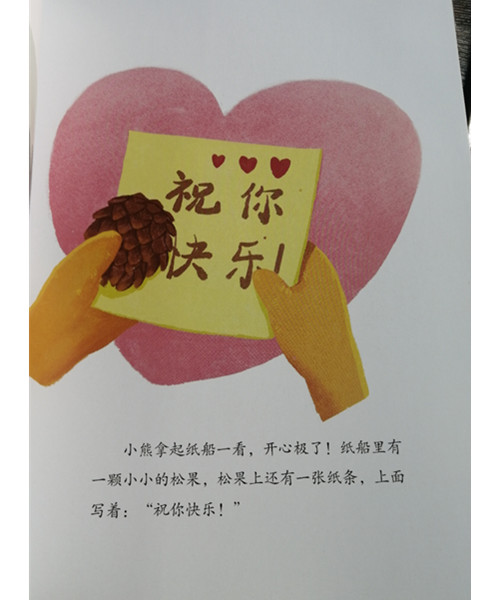 祝你
快乐!
小熊拿起纸船一看，开心极了！纸船里有
一颗小小的松果，松果上还有一张纸条，上面
写着：“祝你快乐！”